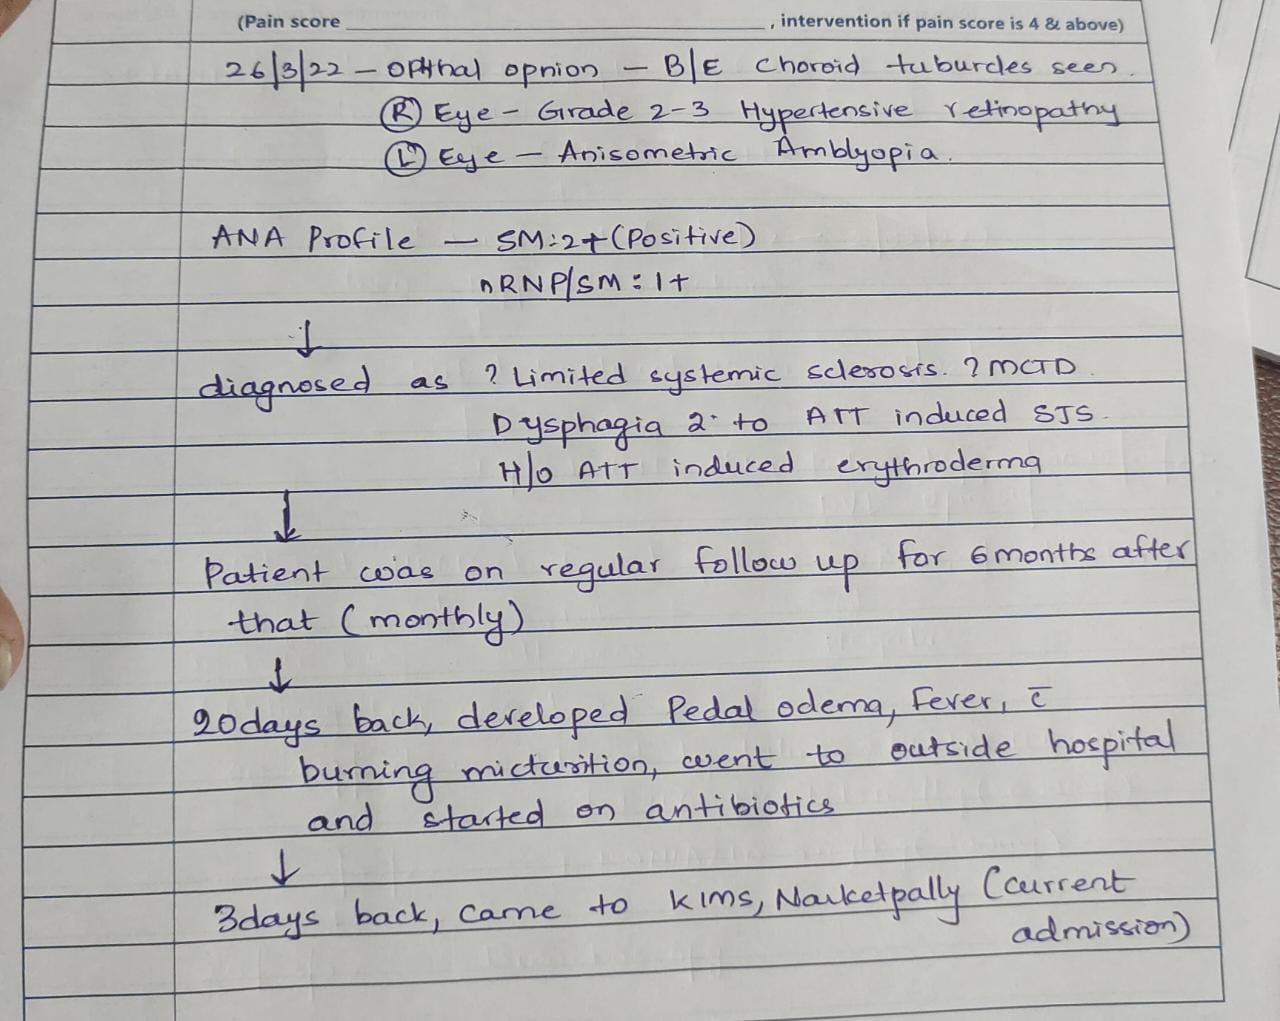 (Pain score ____________________, intervention if pain score is 4 & above)
26/3/22 – Opthal opnion – B/E choroid tuburcles seen.
(R) Eye – Grade 2-3 Hypertensive retinopathy
(L) Eye – Anisometric Amblyopia.
ANA Profile – SM:2+ (Positive)
nRNP/SM : 1+
↓
diagnosed as ? Limited systemic sclerosis. ? MCTD.
Dysphagia 2° to ATT induced SJS.
H/o ATT induced erythroderma
↓
Patient was on regular follow up for 6 months after
that (monthly)
↓
20 days back, developed Pedal odema, Fever, c̄
burning micturition, went to outside hospital
and started on antibiotics
↓
3 days back, came to KIMS, Narketpally (current
admission)